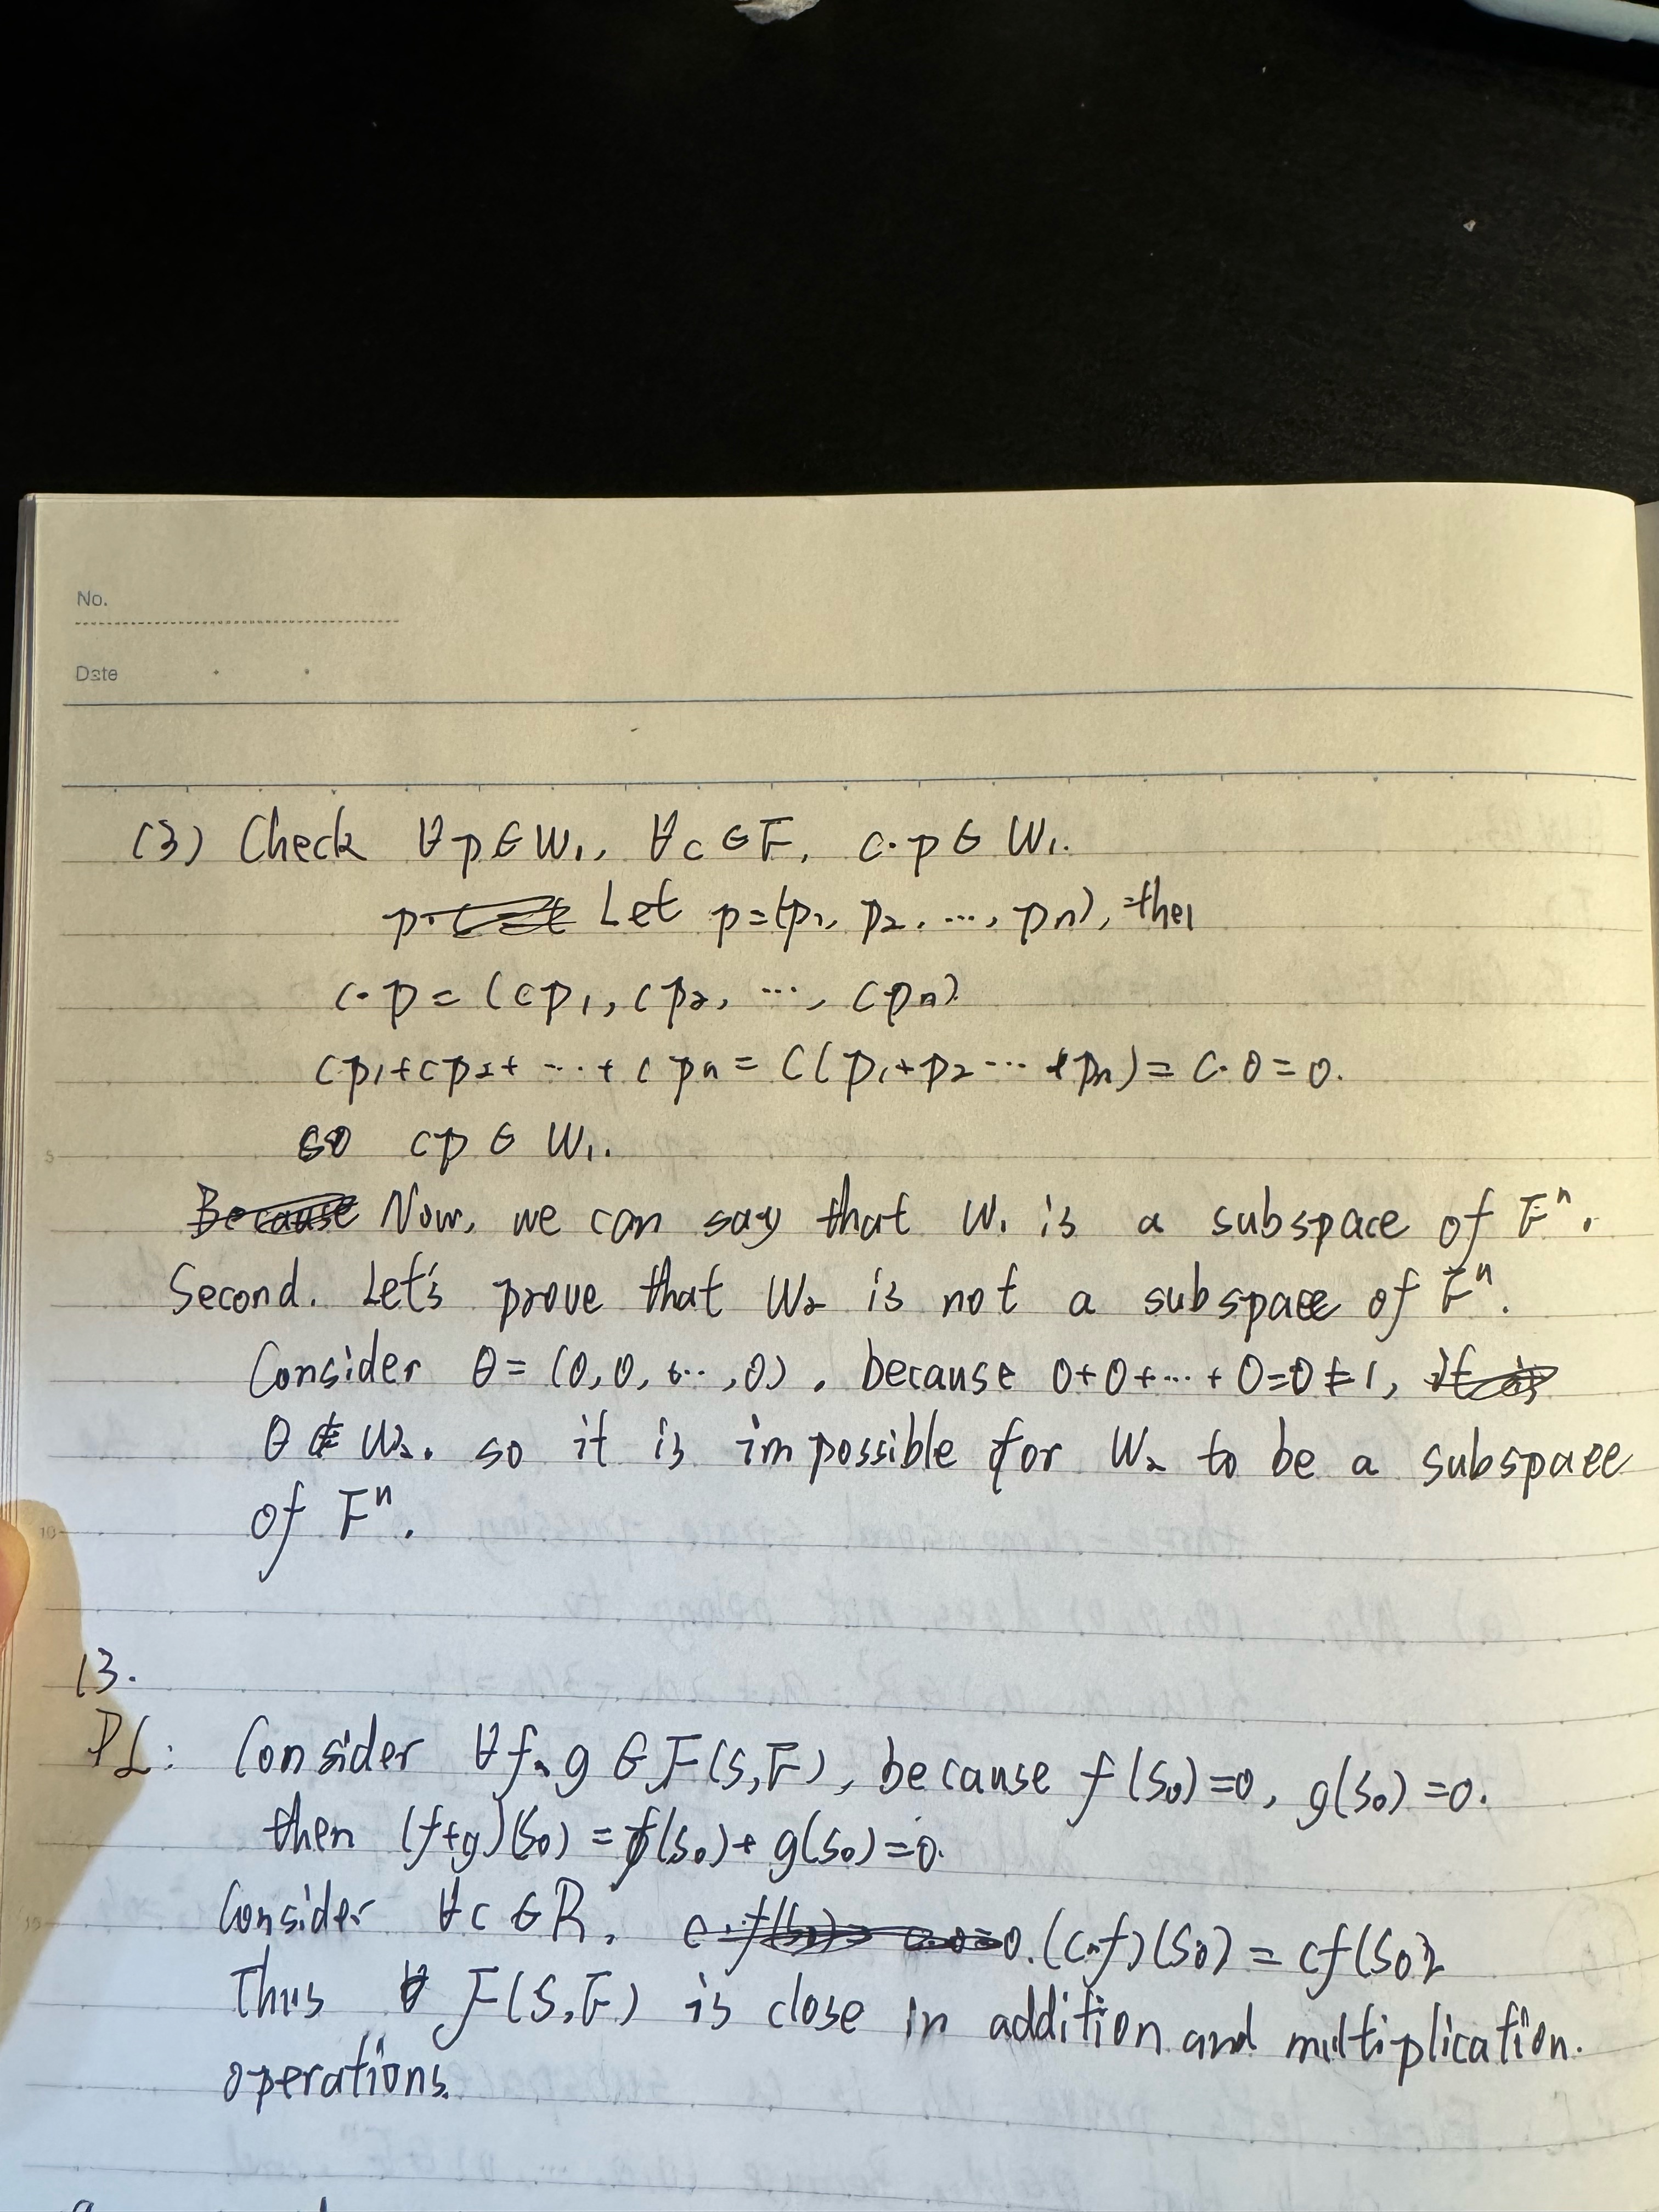 No.
Date
(3) Check ∀p∈W₁, ∀c∈F, c·p∈W₁.
Let p=(p₁, p₂, ..., pn), then
c·p = (cp₁, cp₂, ..., cpn)
cp₁+cp₂+ ... + cpn = C(p₁+p₂ ... +pn) = c·0=0.
so cp ∈ W₁.
5
Because Now, we can say that W₁ is a subspace of Fⁿ.
Second. Let's prove that W₂ is not a subspace of Fⁿ.
Consider θ = (0, 0, ..., 0). because 0+0+...+0=0≠1, it is
θ ∉ W₂. so it is impossible for W₂ to be a subspace
10
of Fⁿ.
13.
Pf: Consider ∀f, g ∈ F(S,F), because f(s₀)=0, g(s₀)=0.
then (f+g)(s₀) = f(s₀)+g(s₀)=0.
15
Consider ∀c∈R. c·f(s₀)= c·0=0. (c·f)(s₀) = cf(s₀).
Thus F(S,F) is close in addition and multiplication.
operations.